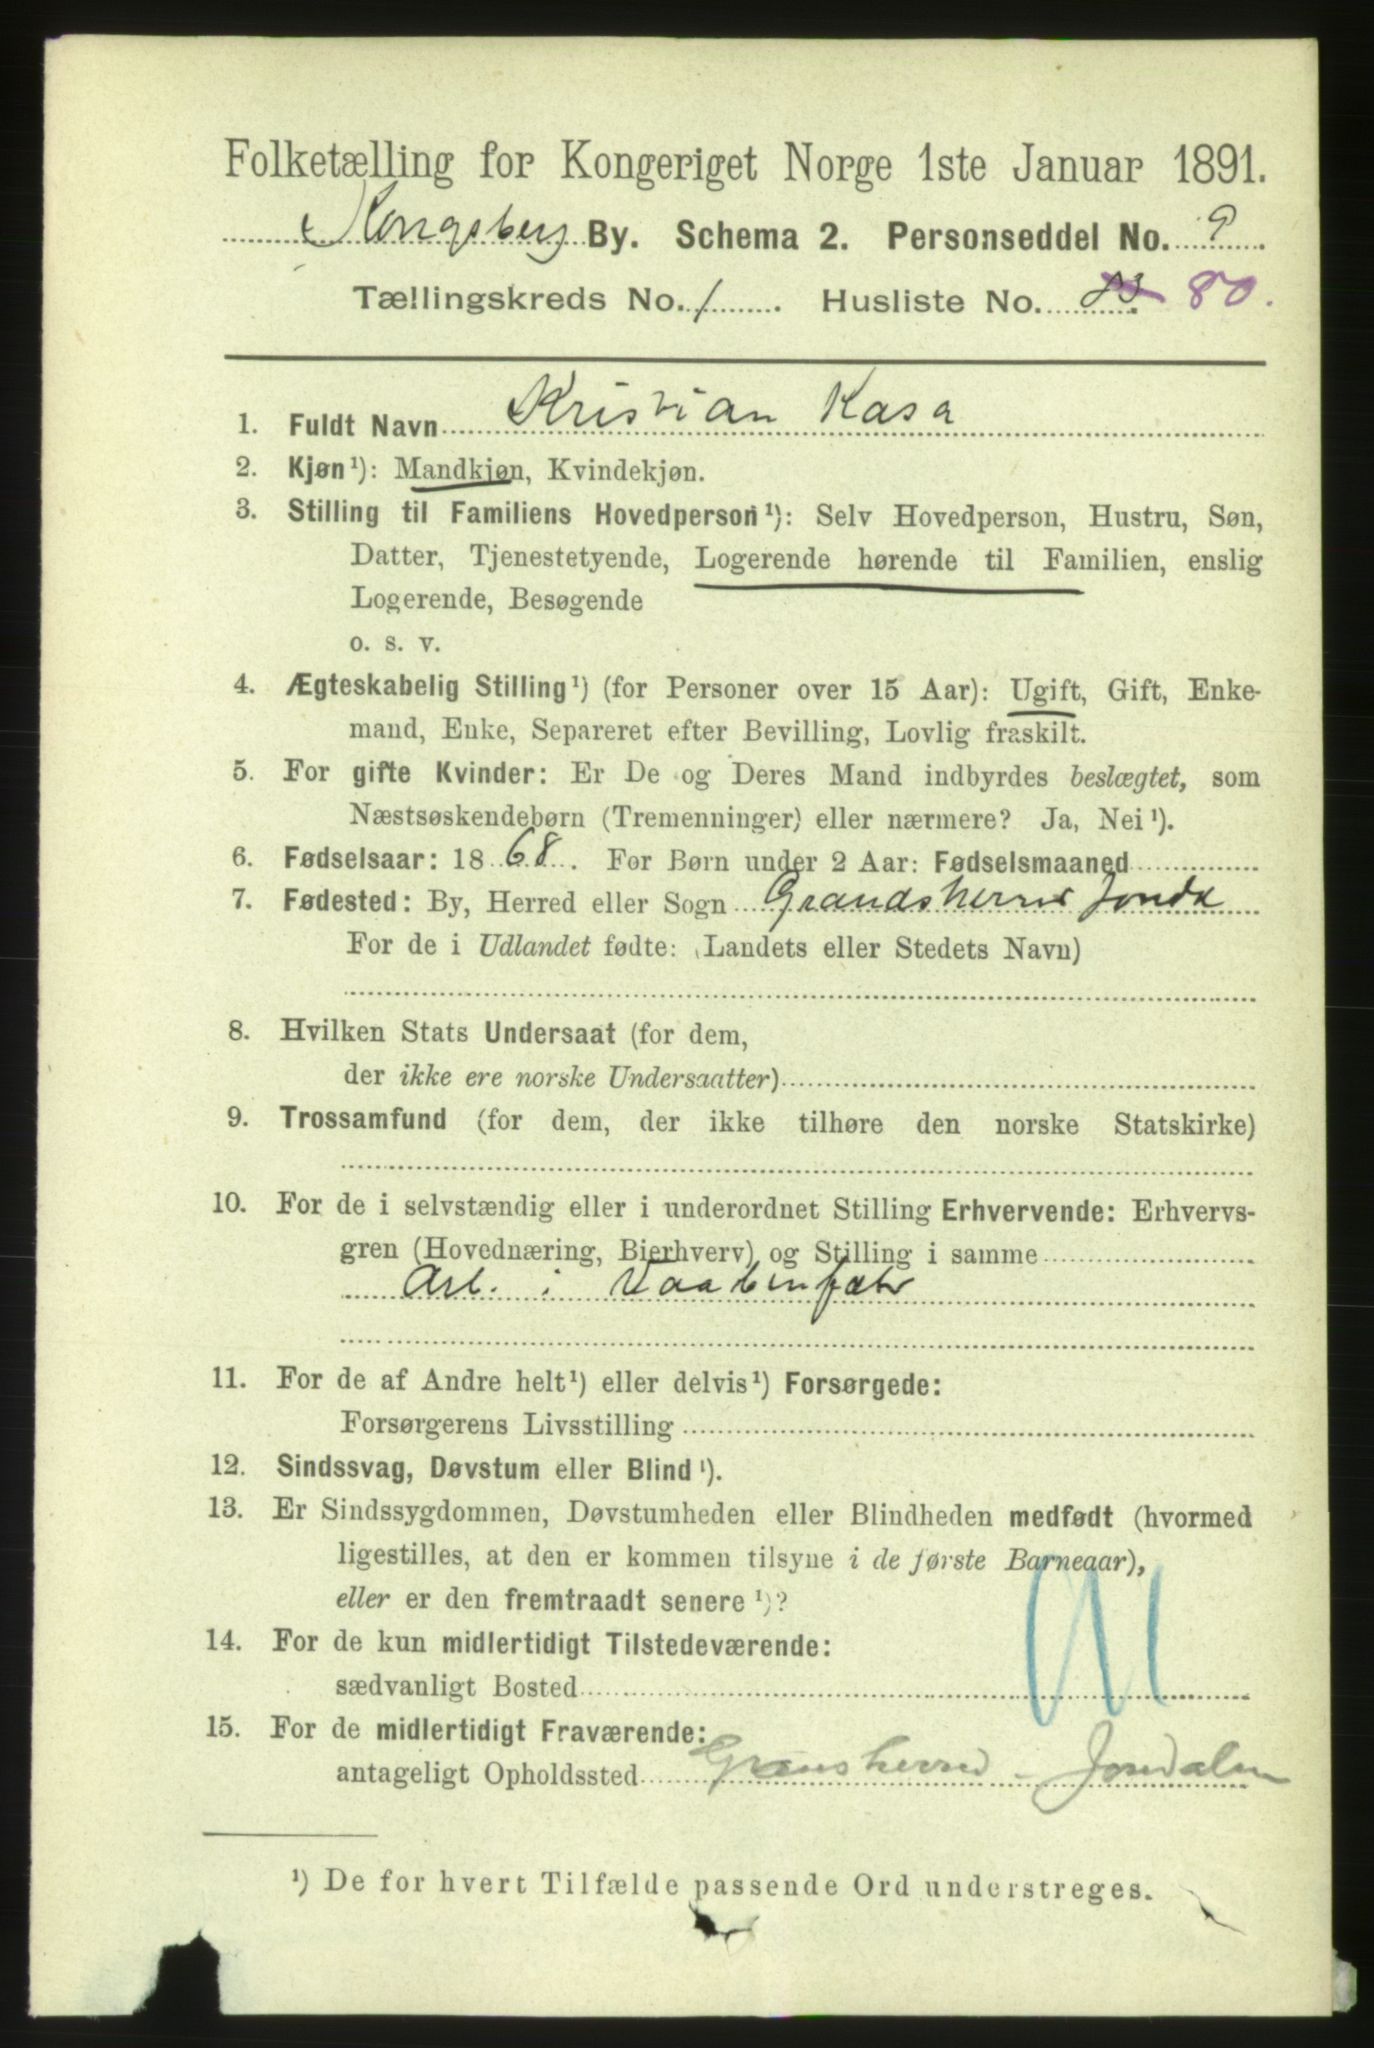 Folketælling for Kongeriget Norge 1ste Januar 1891.
Kongsberg By. Schema 2. Personseddel No. 9.
Tællingskreds No. 1. Husliste No. 80.
1. Fuldt Navn Kristian Kasa
2. Kjøn ¹): Mandkjøn, Kvindekjøn.
3. Stilling til Familiens Hovedperson ¹): Selv Hovedperson, Hustru, Søn,
Datter, Tjenestetyende, Logerende hørende til Familien, enslig
Logerende, Besøgende
o. s. v.
4. Ægteskabelig Stilling ¹) (for Personer over 15 Aar): Ugift, Gift, Enke-
mand, Enke, Separeret efter Bevilling, Lovlig fraskilt.
5. For gifte Kvinder: Er De og Deres Mand indbyrdes beslægtet, som
Næstsøskendebørn (Tremenninger) eller nærmere? Ja, Nei ¹).
6. Fødselsaar: 1868. For Børn under 2 Aar: Fødselsmaaned
7. Fødested: By, Herred eller Sogn Jondd
For de i Udlandet fødte: (Landets eller Stedets Navn)
8. Hvilken Stats Undersaat (for dem,
der ikke ere norske Undersaatter)
9. Trossamfund (for dem, der ikke tilhøre den norske Statskirke)
10. For de i selvstændig eller i underordnet Stilling Erhvervende: Erhvervs-
gren (Hovednæring, Bierhverv) og Stilling i samme
Arb. i Vaabenfabr
11. For de af Andre helt ¹) eller delvis ¹) Forsørgede:
Forsørgerens Livsstilling
12. Sindssvag, Døvstum eller Blind ¹).
13. Er Sindssygdommen, Døvstumheden eller Blindheden medfødt (hvormed
ligestilles, at den er kommen tilsyne i de første Barneaar),
eller er den fremtraadt senere ¹)?
14. For de kun midlertidigt Tilstedeværende:
sædvanligt Bosted
15. For de midlertidigt Fraværende:
antageligt Opholdssted Gransherred - Jondalen
¹) De for hvert Tilfælde passende Ord understreges.